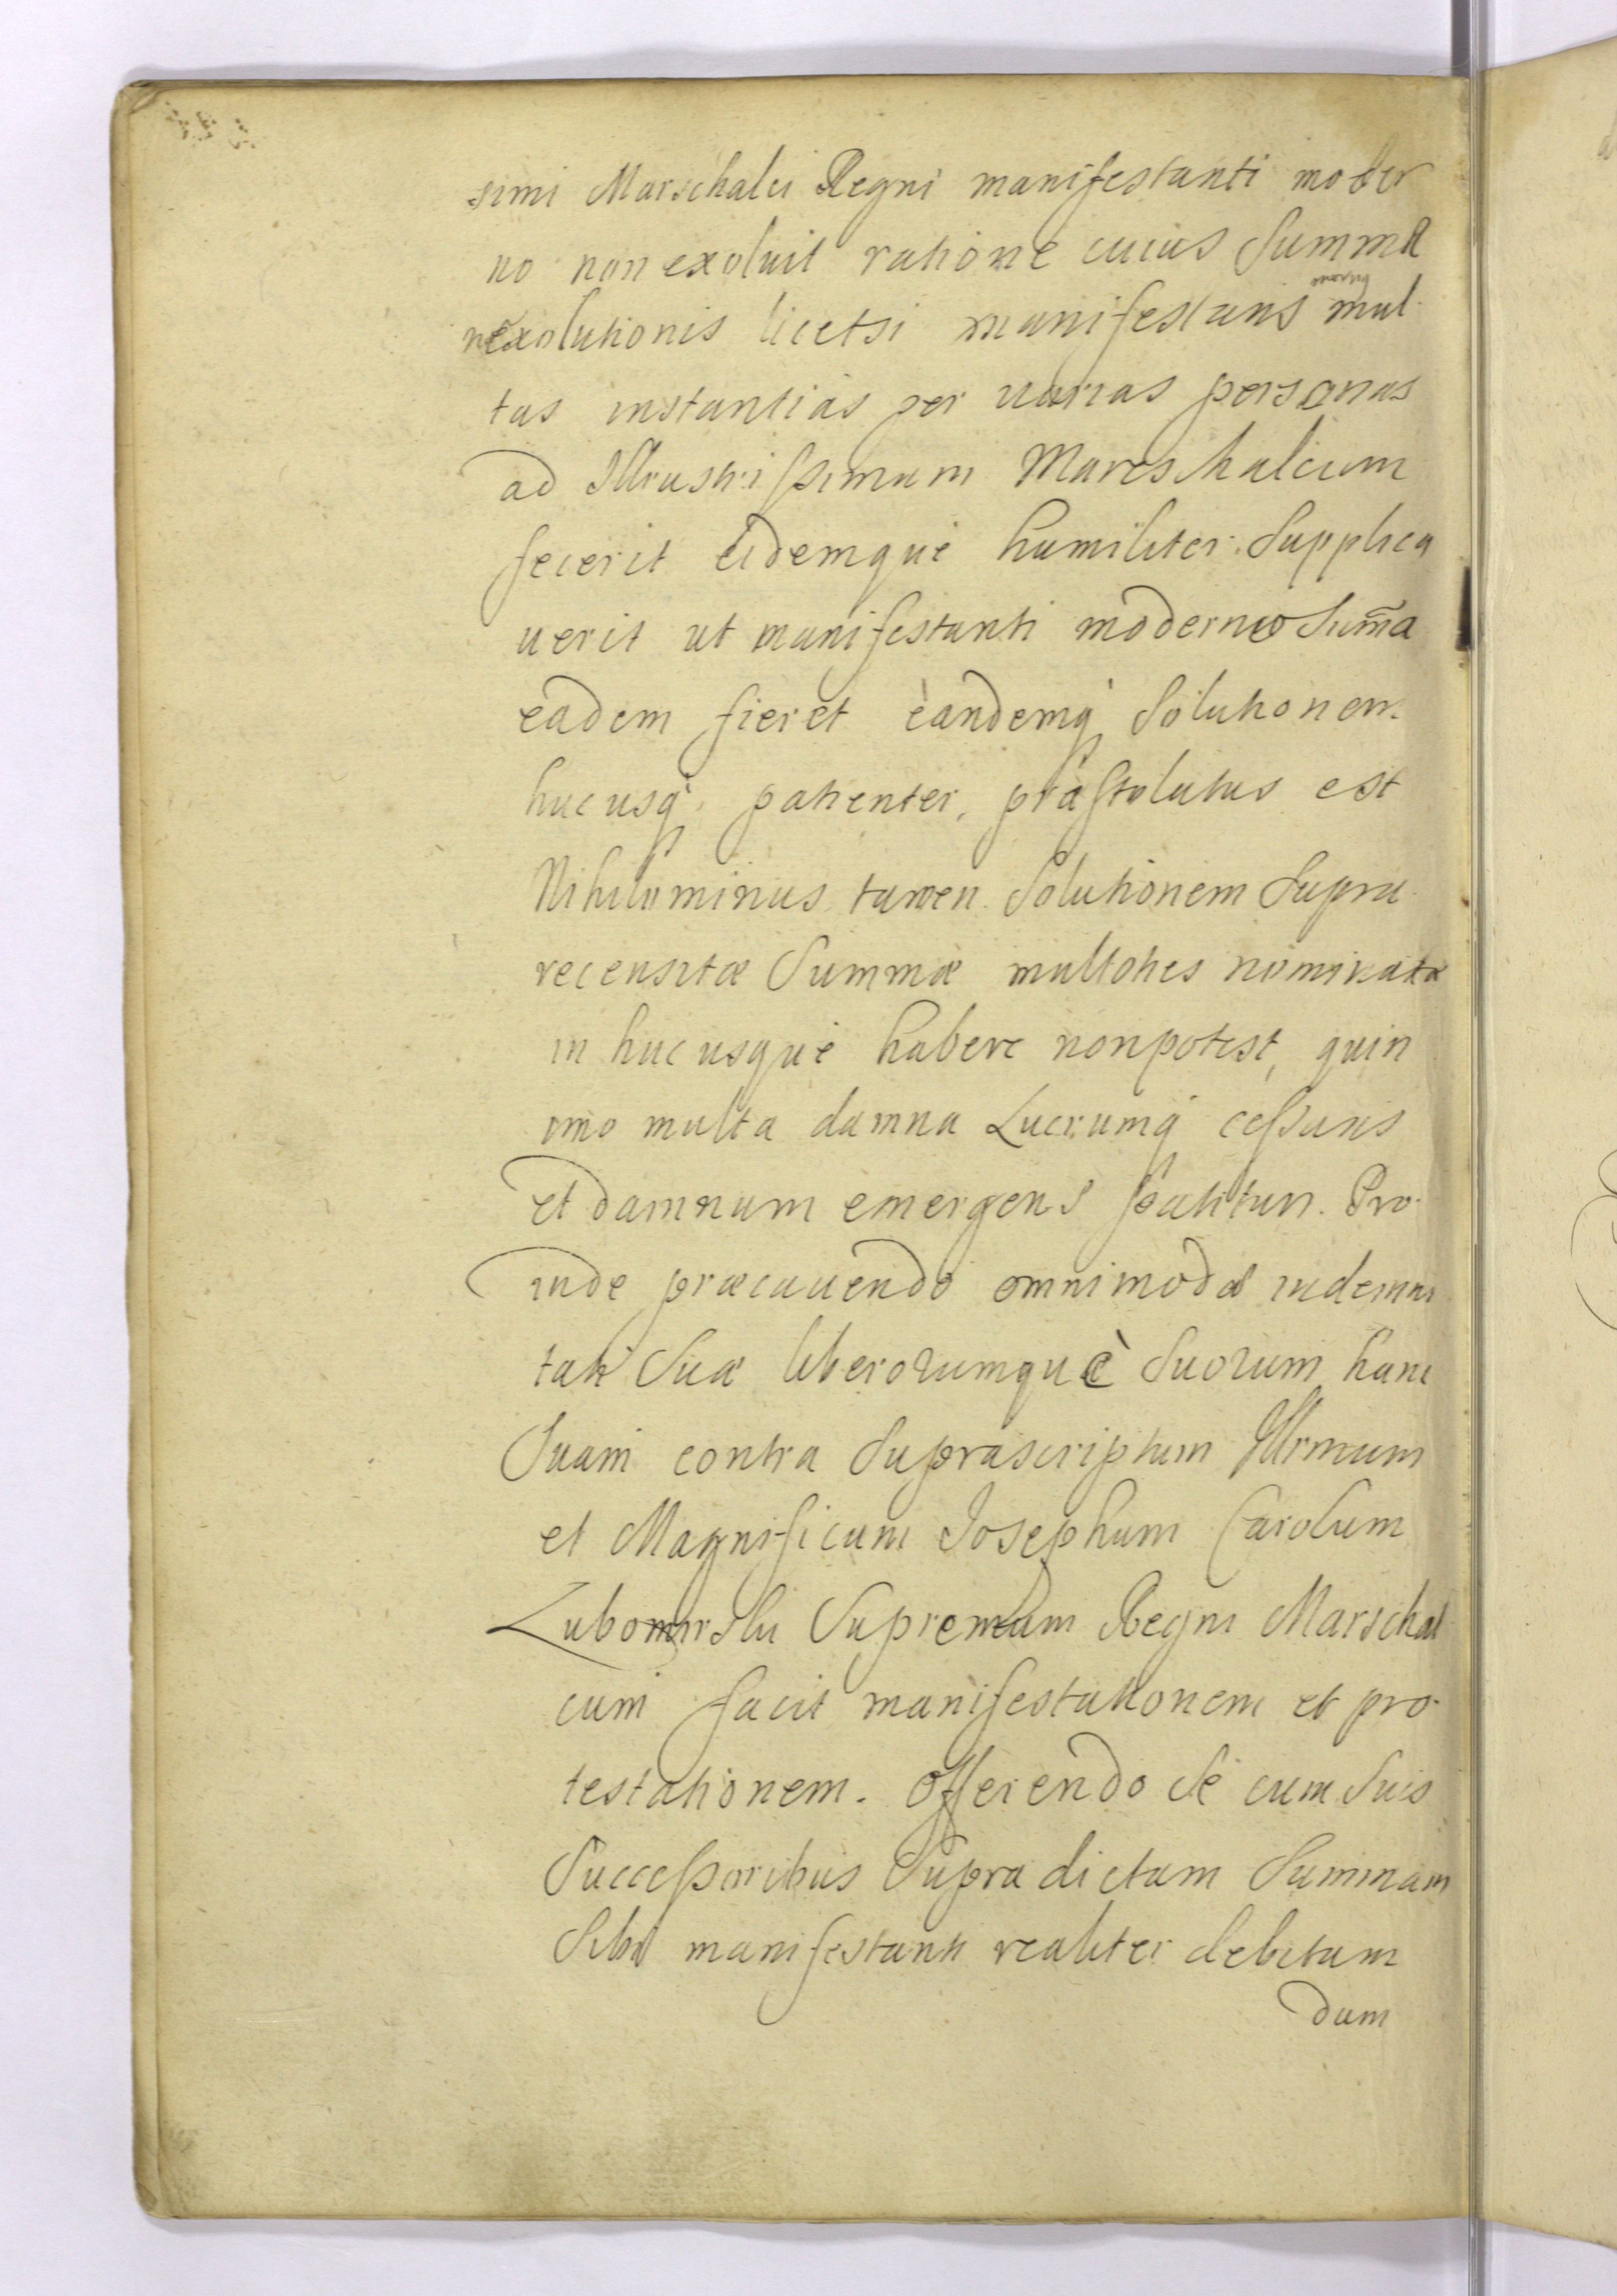 simi Marschalci Regni manifestanti moder
no non exoluit ratione cuius Summæ
nexolutionis licetsi manifestans mul-
tas instantias per uarias personas
ad Illrustrissimum Mareschalcum
fecerit eidemque humiliter Supplica
uerit ut manifestanti moderno Sum̃a
eadem fieret eandemq́ Solutionem
huc usq́ patienter, præstolatus est
Nihilominus tamen Solutionem Supra
recensitæ Summæ multoties nominatæ
in huc usque habere nonpotest, quin
imo multa damna Lucrumq́ cessans
et damnum emergens patitur. Pro-
inde præcauendo omnimodæ indemni
tati Suæ liberorumquè Suorum hanc
Suam contra Suprascriptum Illrmum
et Magnificum Josephum Carolum
Lubomirski Supremum Regni Marschal
cum facit manifestationem et pro-
testationem. Offerendo Se cum Suis
Successoribus Supra dictam Summam
Sibi manifestanti realiter debitam
dum